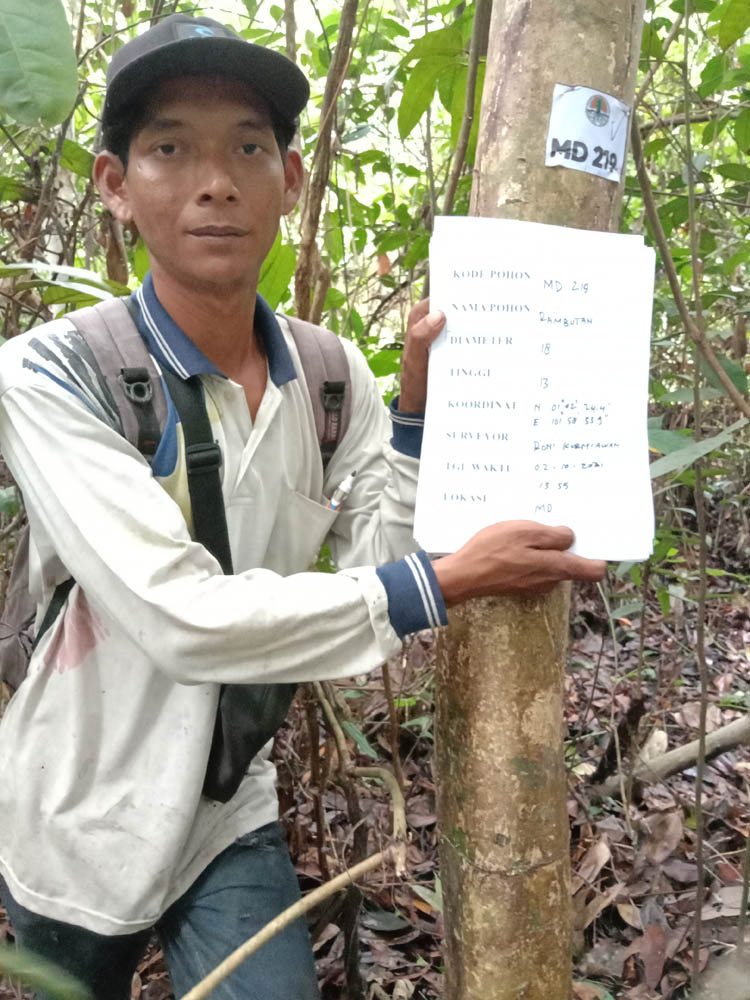 MD 219
KODE POHON MD 219
NAMA POHON RAMBUTAN
DIAMETER 18
TINGGI 13
KOORDINAT N 01° 02' 24.4"
E 101 58 53.9"
SURVEYOR RONI KURNIAWAN
TGL WAKTU 02-10-2021
13 55
LOKASI MD